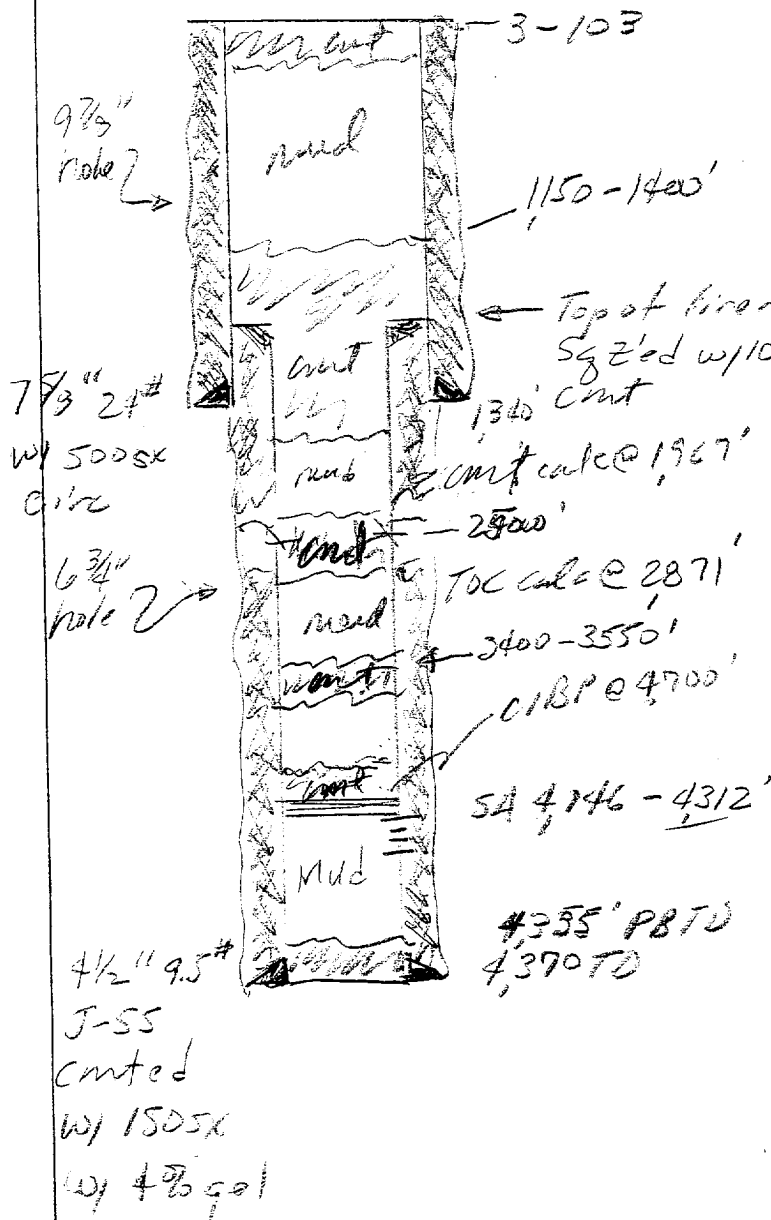 cmt
3-103
9 7/8"
hole
mud
1,150-1400'
Top of liner
Sqz'ed w/10
cmt
7 5/8" 24#
w/ 500sx
circ
cmt
1,340'
mud
cmt calc @ 1,967'
cmt
6 3/4"
hole
TOC calc @ 2,871'
mud
3400-3550'
cmt
CIBP @ 4,700'
cmt
SA 4,846 - 4,312'
Mud
4,355' PBTD
4,370 TD
4 1/2" 9.5#
J-55
cmted
w/ 150sx
w/ 4% gel